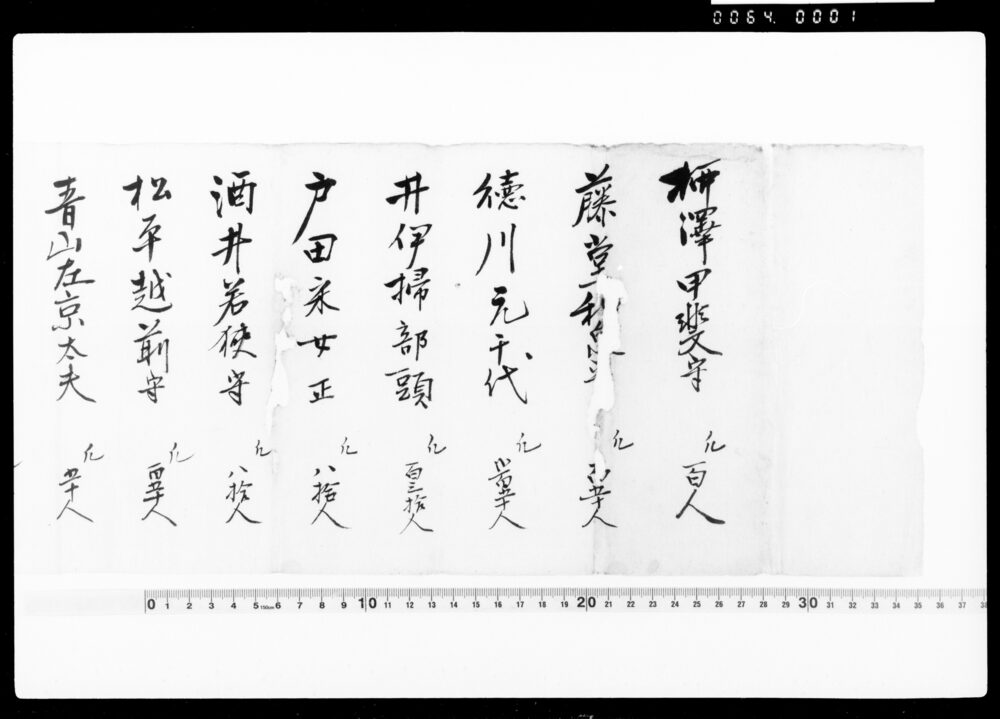 0064. 0001
柳澤甲斐守
凡百人
藤堂和泉
凡 五十人
徳川元千代
凡 五十人
井伊掃部頭
凡百三拾人
戸田采女正
凡八拾人
酒井若狭守
凡八拾人
松平越前守
凡 五十人
青山左京太夫
凡五十人
0 1 2 3 4 5 150mm 6 7 8 9 10 11 12 13 14 15 16 17 18 19 20 21 22 23 24 25 26 27 28 29 30 31 32 33 34 35 36 37 38